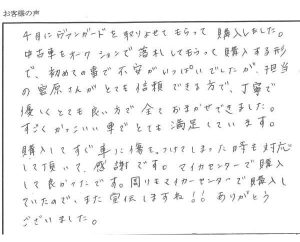 お客様の声
千月にヴァンガードを取りよせてもらって購入しました。
中古車をオークションで落札してもらって購入する形
で、初めての事で不安がいっぱいでしたが、担当
の宮原さんがとても信頼できる方で、丁寧で
優しくとても良い方で全ておまかせできました。
すごくかっこいい車でとても満足しています。
購入してすぐ車に傷をつけてしまった時も対応
して頂いて、感謝です。マイカセンターで購入
して良かったです。周りもマイカーセンターで購入し
ていたので、また宣伝しますね!!ありがとう
ございました。